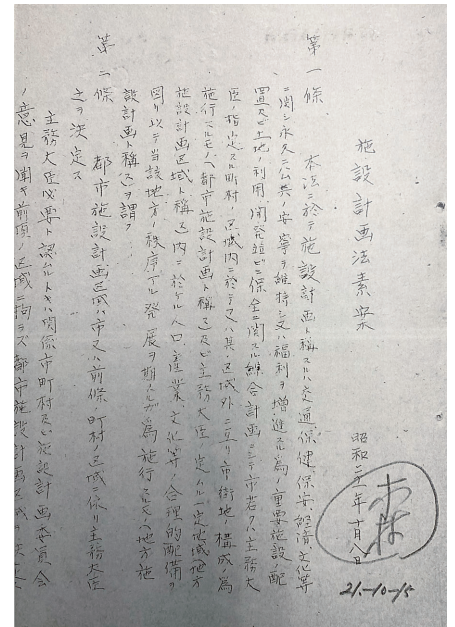 施設計画法素案
昭和二十一年十月八日
森
21-10-15
第一條　本法ニ於テ施設計画ト稱スルハ交通、保健、保安、経済、文化等
ニ関シ永久ニ公共ノ安寧ヲ維持シ又ハ福利ヲ増進スル為ノ重要施設ノ配
置及ビ土地ノ利用、開発並ビニ保全ニ関スル綜合計画ニシテ市若クハ主務大
臣ノ指定スル町村ノ区域内ニ於テ又ハ其ノ区域外ニ亘リ市街地ノ構成ノ為
施行スルモノ(都市施設計画ト稱ス)及ビ主務大臣ノ定ムル一定地域(地方
施設計画区域ト稱ス)内ニ於ケル人口、産業、文化等ノ合理的配備ヲ
図リ以テ当該地方ノ秩序アル発展ヲ期スルガ為施行スルモノ(地方施
設計画ト稱ス)ヲ謂フ
第二條　都市施設計画区域ハ市又ハ前條ノ町村ノ区域ニ依リ主務大臣
之ヲ決定ス
主務大臣必要ト認ムルトキハ関係市町村及ビ施設計画委員会
ノ意見ヲ聞キ前項ノ区域ニ拘ラズ都市施設計画区域ヲ決定